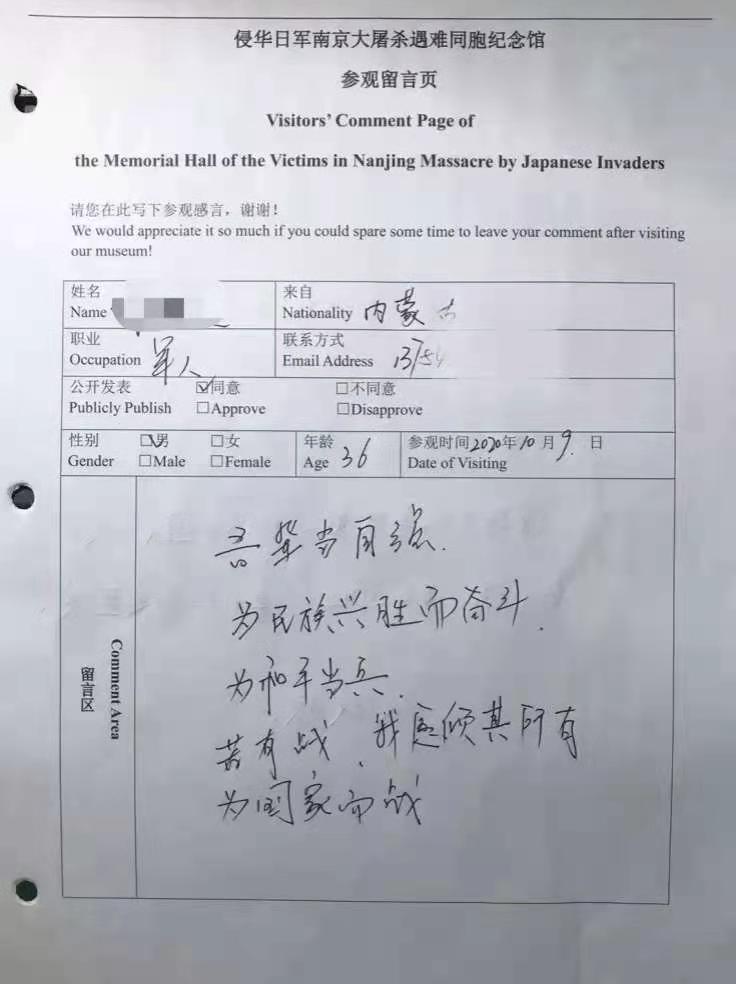 侵华日军南京大屠杀遇难同胞纪念馆
参观留言页
Visitors' Comment Page of
the Memorial Hall of the Victims in Nanjing Massacre by Japanese Invaders
请您在此写下参观感言，谢谢！
We would appreciate it so much if you could spare some time to leave your comment after visiting
our museum!
姓名
Name
来自
Nationality 内蒙古
职业
Occupation 军人
联系方式
Email Address 13754
公开发表 ☑同意 □不同意
Publicly Publish □Approve □Disapprove
性别 ☑男 □女
Gender □Male □Female
年龄
Age 36
参观时间2020年10月9日
Date of Visiting
留言区
Comment Area
吾辈当自强.
为民族兴胜而奋斗.
为和平当兵.
若有战，我愿倾其所有
为国家而战